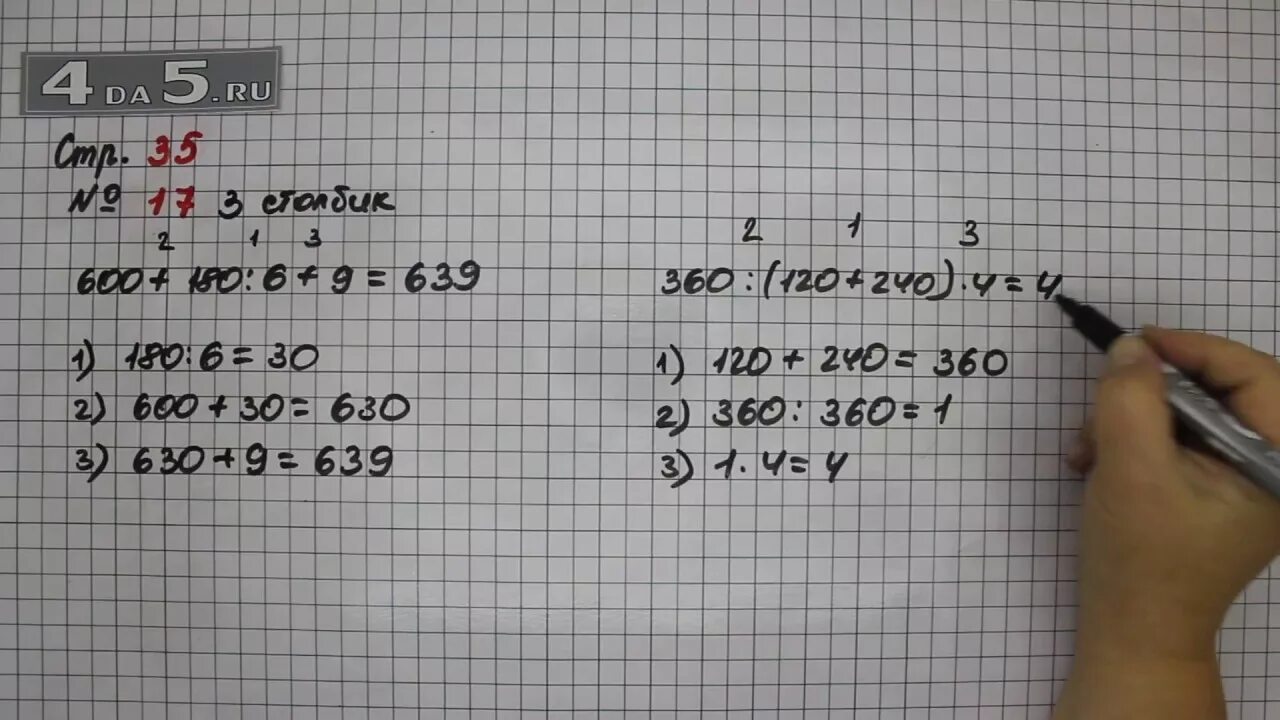 4 DA 5.RU
Стр. 35
№ 17 3 столбик
2 1 3
600 + 180 : 6 + 9 = 639
1) 180 : 6 = 30
2) 600 + 30 = 630
3) 630 + 9 = 639
2 1 3
360 : (120 + 240) · 4 = 4
1) 120 + 240 = 360
2) 360 : 360 = 1
3) 1 · 4 = 4